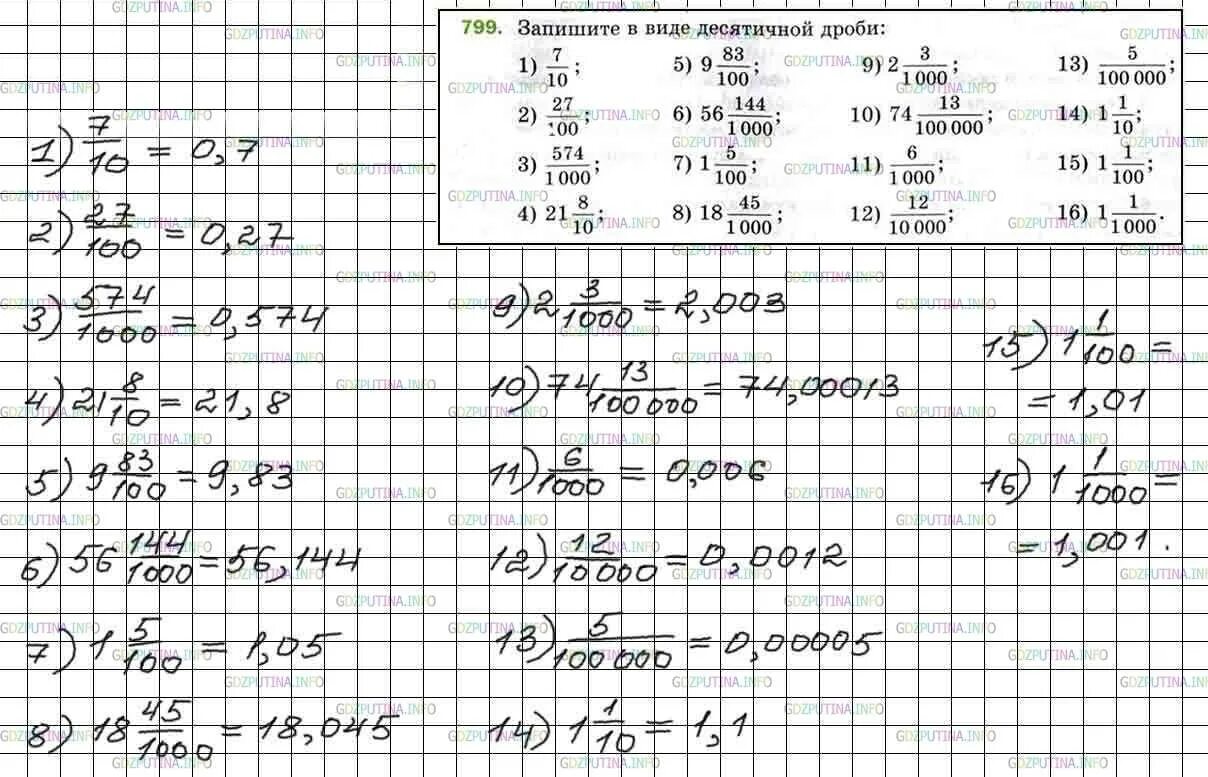 799. Запишите в виде десятичной дроби:
1) 7/10; 5) 9 83/100; 9) 2 3/1000; 13) 5/100 000;
2) 27/100; 6) 56 144/1000; 10) 74 13/100 000; 14) 1 1/10;
3) 574/1000; 7) 1 5/100; 11) 6/1000; 15) 1 1/100;
4) 21 8/10; 8) 18 45/1000; 12) 12/10 000; 16) 1 1/1000.
1) 7/10 = 0,7
2) 27/100 = 0,27
3) 574/1000 = 0,574
4) 21 8/10 = 21,8
5) 9 83/100 = 9,83
6) 56 144/1000 = 56,144
7) 1 5/100 = 1,05
8) 18 45/1000 = 18,045
9) 2 3/1000 = 2,003
10) 74 13/100 000 = 74,00013
11) 6/1000 = 0,006
12) 12/10 000 = 0,0012
13) 5/100 000 = 0,00005
14) 1 1/10 = 1,1
15) 1 1/100 =
= 1,01
16) 1 1/1000 =
= 1,001.
GDZPUTINA.INFO